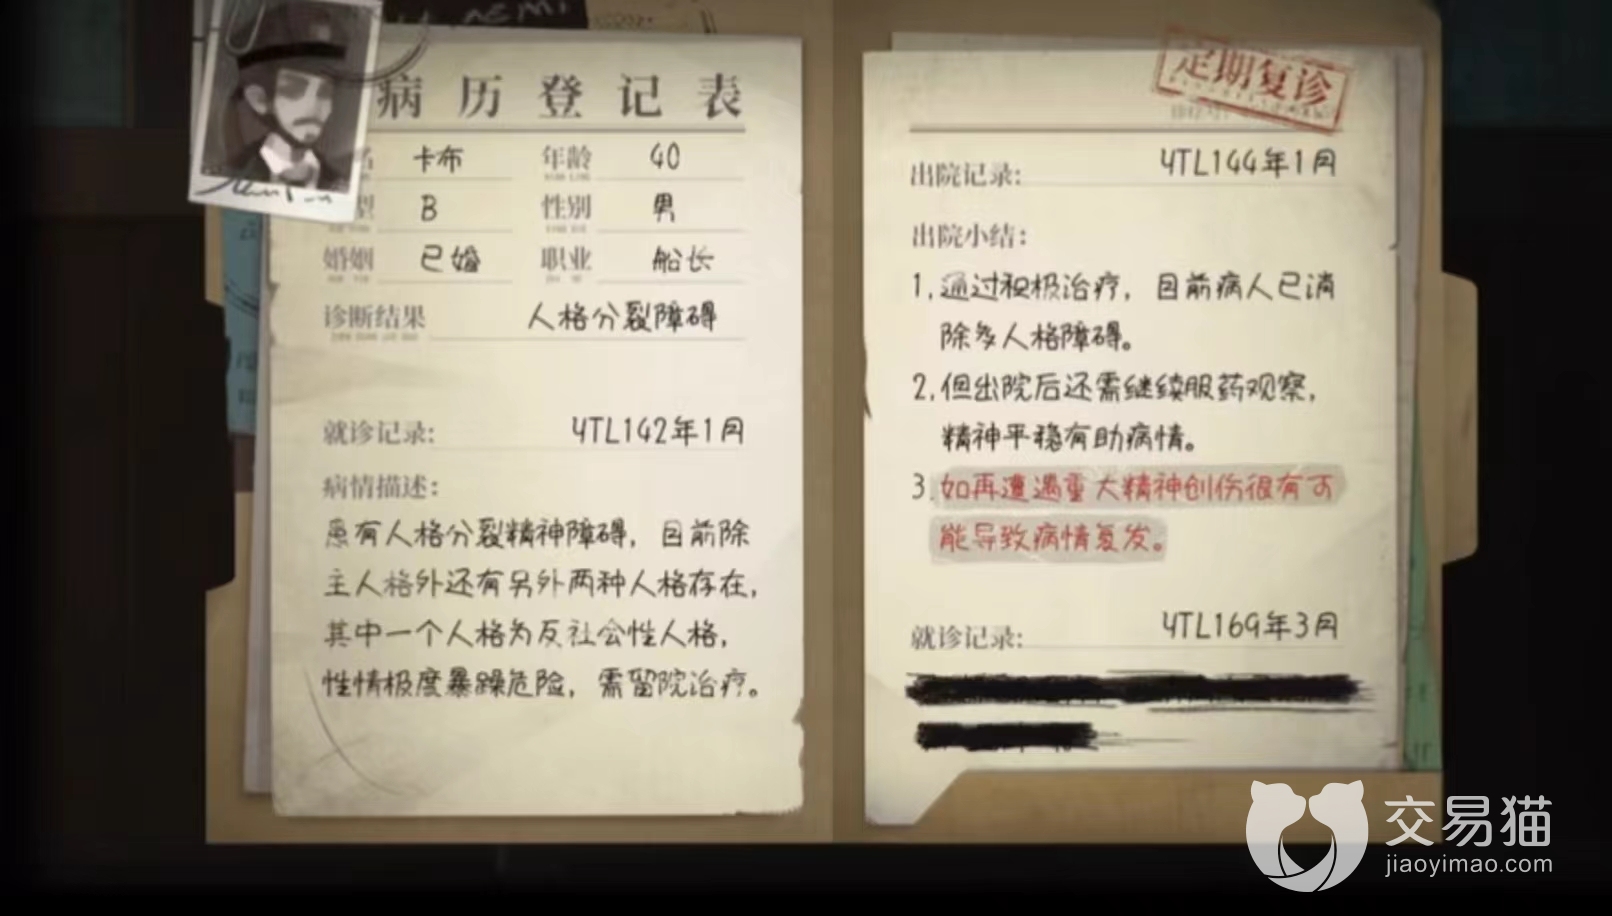 病历登记表
卡布 年龄 40
B 性别 男
婚姻 已婚 职业 船长
诊断结果 人格分裂障碍
就诊记录: 4TL142年1月
病情描述:
患有人格分裂精神障碍，目前除
主人格外还有另外两种人格存在，
其中一个人格为反社会性人格，
性情极度暴躁危险，需留院治疗。
定期复诊
出院记录: 4TL144年1月
出院小结:
1.通过积极治疗，目前病人已消
除多人格障碍。
2.但出院后还需继续服药观察，
精神平稳有助病情。
3.如再遭遇重大精神创伤很有可
能导致病情复发。
就诊记录: 4TL169年3月
交易猫
jiaoyimao.com